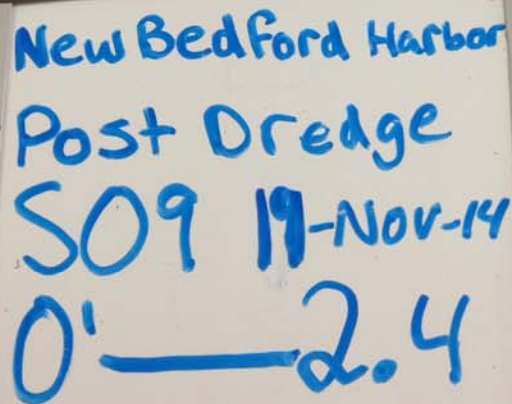 New Bedford Harbor
Post Dredge
S09 19-Nov-14
0'—2.4